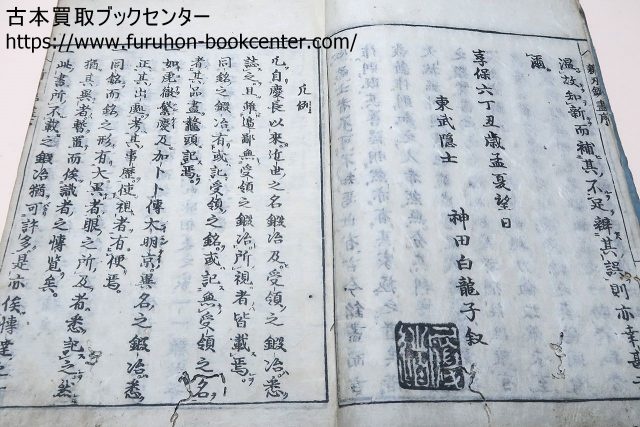 古本買取ブックセンター
https://www.furuhon-bookcenter.com/
新刃銘盡序
温故知新而補其不足辨其誤則亦幸甚
爾
享保六丁丑歳孟夏望日
東武隠士
神田白龍子叙
凡例
凡自慶長以来近世之名鍛冶及受領之鍛冶悉
誌之且雖邊鄙無受領之鍛冶所視者皆載焉
同銘之鍛冶有或記受領之銘或記無受領之名
者其品盡鼇頭記焉
如虎徹繁慶及加卜卜傳大明京異名之鍛冶悉
正其出處考其事歴使視者有便焉
同銘而銘之形有大異者眼之所及者悉記之然
猶其異者暫置而俟識者之博覧矣
此書所不載之鍛冶猶可許多是亦俟博達之